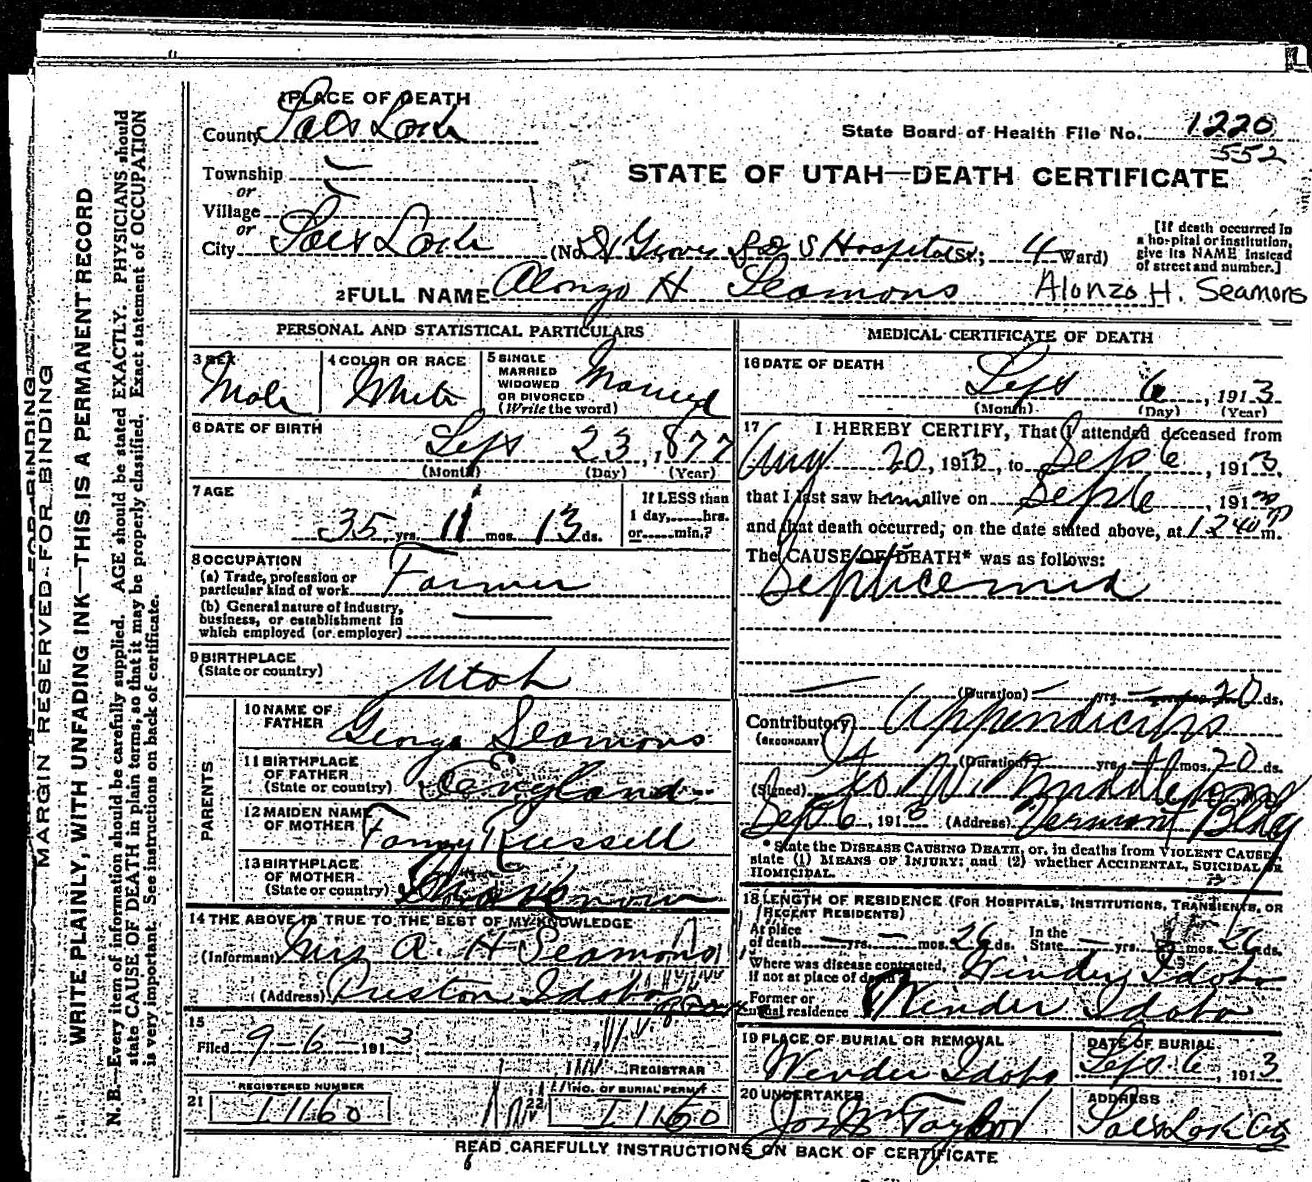 PLACE OF DEATH
County Salt Lake
State Board of Health File No. 1220
552
Township
or
Village
or
STATE OF UTAH—DEATH CERTIFICATE
City Salt Lake (No. Groves L D S Hospital St.; 4 Ward)
[If death occurred in a hospital or institution, give its NAME instead of street and number.]
2 FULL NAME Alonzo H Seamons Alonzo H. Seamons
PERSONAL AND STATISTICAL PARTICULARS
3 SEX Male
4 COLOR OR RACE White
5 SINGLE MARRIED WIDOWED OR DIVORCED (Write the word) Married
6 DATE OF BIRTH Sept 23, 1877
(Month) (Day) (Year)
7 AGE 35 yrs. 11 mos. 13 ds.
If LESS than 1 day,.....hrs. or.....min.?
8 OCCUPATION
(a) Trade, profession or particular kind of work Farmer
(b) General nature of industry, business, or establishment in which employed (or employer)
9 BIRTHPLACE (State or country) Utah
PARENTS
10 NAME OF FATHER George Seamons
11 BIRTHPLACE OF FATHER (State or country) England
12 MAIDEN NAME OF MOTHER Fanny Russell
13 BIRTHPLACE OF MOTHER (State or country)
14 THE ABOVE IS TRUE TO THE BEST OF MY KNOWLEDGE
(Informant) Mrs A. H Seamons
(Address) Preston Idaho
15
Filed 9-6-1913
REGISTRAR
21 REGISTERED NUMBER I 1160
22 NO. OF BURIAL PERMIT I 1160
MEDICAL CERTIFICATE OF DEATH
16 DATE OF DEATH Sept 6, 1913
(Month) (Day) (Year)
17 I HEREBY CERTIFY, That I attended deceased from
Aug 20, 1913, to Sept 6, 1913.
that I last saw him alive on Sept 6, 1913
and that death occurred, on the date stated above, at 1240 P m.
The CAUSE OF DEATH* was as follows:
Septicemia
(Duration) yrs. mos. 20 ds.
Contributory (SECONDARY) Appendicitis
(Duration) yrs. mos. 20 ds.
(Signed) Geo W. Middleton
Sept 6, 1913 (Address) Vermont Bldg
* State the DISEASE CAUSING DEATH, or, in deaths from VIOLENT CAUSES, state (1) MEANS OF INJURY; and (2) whether ACCIDENTAL, SUICIDAL OR HOMICIDAL.
18 LENGTH OF RESIDENCE (FOR HOSPITALS, INSTITUTIONS, TRANSIENTS, OR RECENT RESIDENTS)
At place of death yrs. mos. 26 ds. In the State yrs. mos. 26 ds.
Where was disease contracted, if not at place of death? Winder, Idaho
Former or usual residence Winder Idaho
19 PLACE OF BURIAL OR REMOVAL Winder Idaho
DATE OF BURIAL Sept. 6, 1913
20 UNDERTAKER Jos Wm Taylor
ADDRESS Salt Lake City
READ CAREFULLY INSTRUCTIONS ON BACK OF CERTIFICATE
6
MARGIN RESERVED FOR BINDING
WRITE PLAINLY, WITH UNFADING INK—THIS IS A PERMANENT RECORD
N. B.—Every item of information should be carefully supplied. AGE should be stated EXACTLY. PHYSICIANS should
state CAUSE OF DEATH in plain terms, so that it may be properly classified. Exact statement of OCCUPATION
is very important. See instructions on back of certificate.